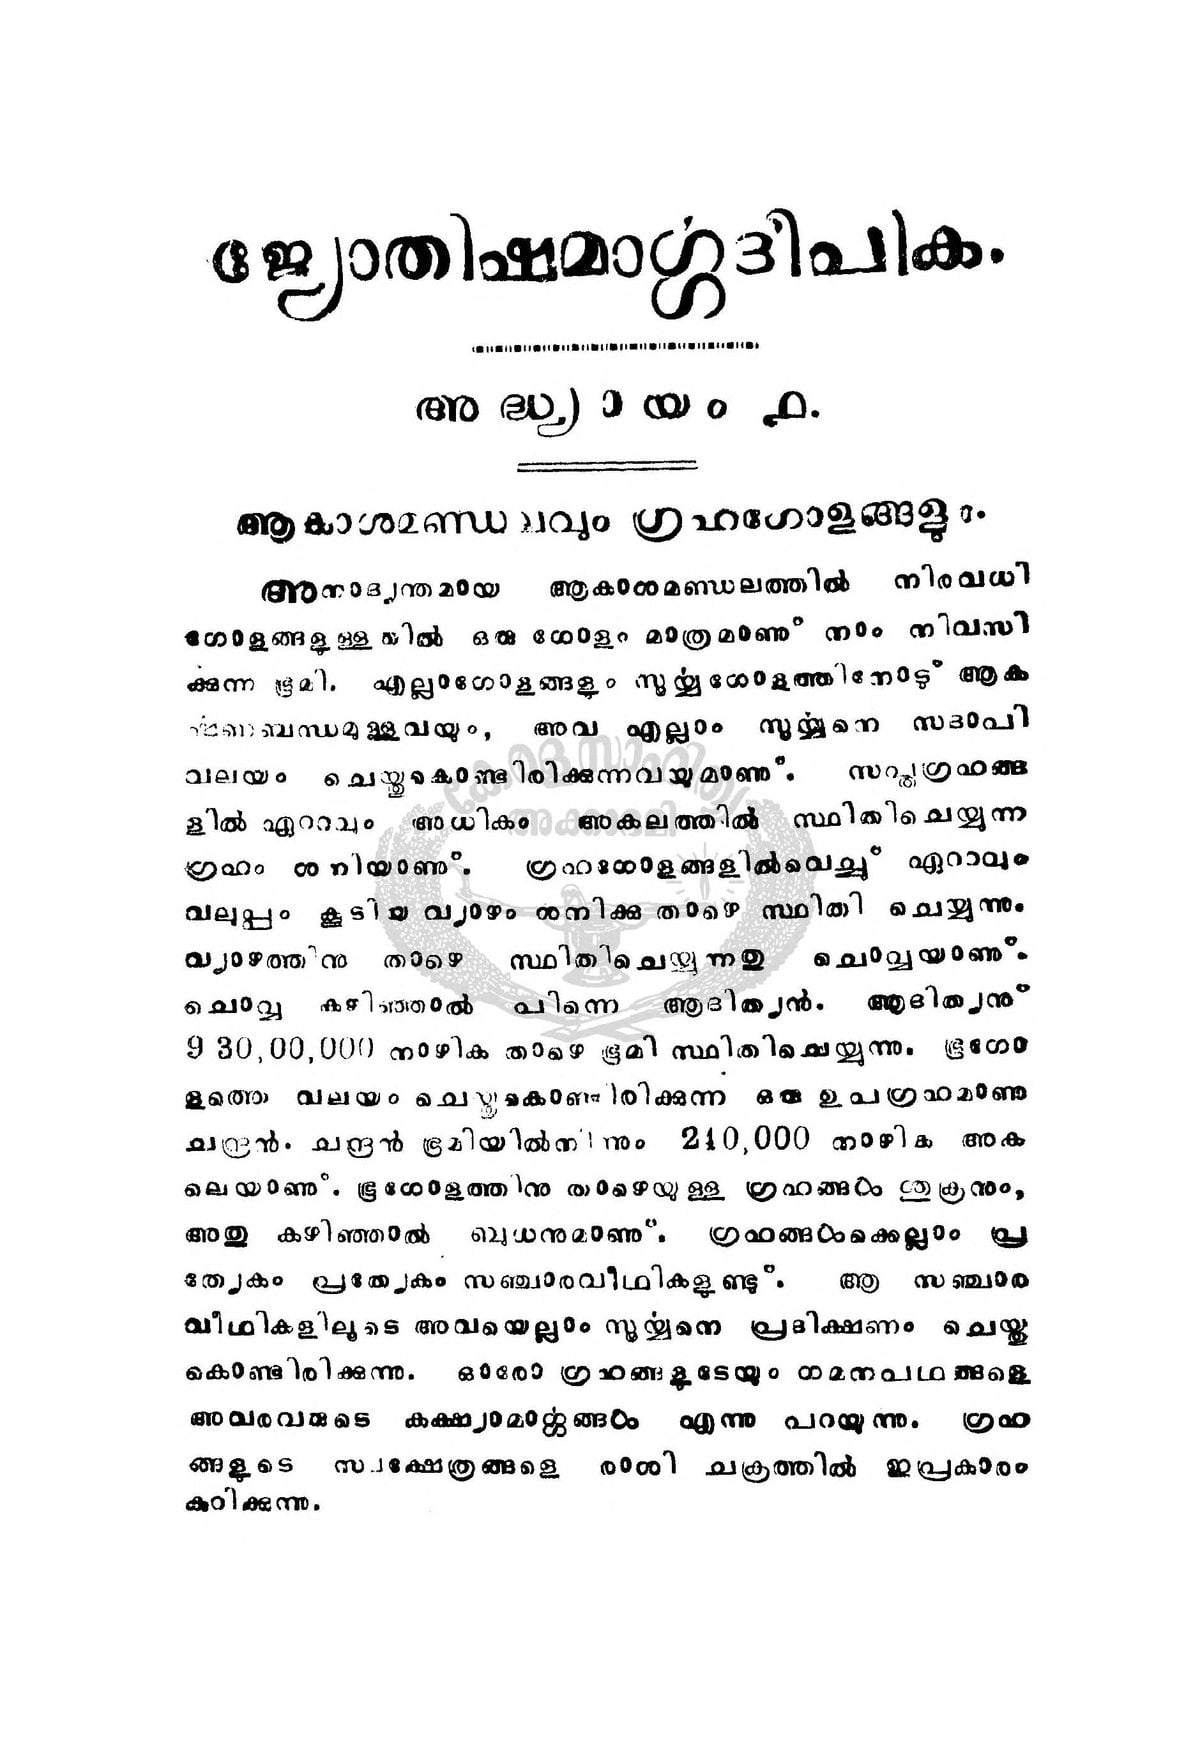 ജ്യോതിഷമാൎഗ്ഗദീപിക.
അദ്ധ്യായം ൧.
ആകാശമണ്ഡലവും ഗ്രഹഗോളങ്ങളും.
അനാദ്യന്തമായ ആകാശമണ്ഡലത്തിൽ നിരവധി
ഗോളങ്ങളുള്ളയിൽ ഒരു ഗോളം മാത്രമാണ് നാം നിവസി
ക്കുന്ന ഭൂമി. എല്ലാഗോളങ്ങളും സൂൎയ്യഗോളത്തിനോട് ആക
ൎഷണബന്ധമുള്ളവയും, അവ എല്ലാം സൂൎയ്യനെ സദാപി
വലയം ചെയ്തുകൊണ്ടിരിക്കുന്നവയുമാണ്. സപ്തഗ്രഹങ്ങ
ളിൽ ഏറ്റവും അധികം അകലത്തിൽ സ്ഥിതിചെയ്യുന്ന
ഗ്രഹം ശനിയാണ്. ഗ്രഹഗോളങ്ങളിൽവെച്ച് ഏറ്റവും
വലുപ്പം കൂടിയ വ്യാഴം ശനിക്കു താഴെ സ്ഥിതി ചെയ്യുന്നു.
വ്യാഴത്തിനു താഴെ സ്ഥിതിചെയ്യുന്നതു ചൊവ്വയാണ്.
ചൊവ്വ കഴിഞ്ഞാൽ പിന്നെ ആദിത്യൻ. ആദിത്യന്
9 30,00,000 നാഴിക താഴെ ഭൂമി സ്ഥിതിചെയ്യുന്നു. ഭൂഗോ
ളത്തെ വലയം ചെയ്തുകൊണ്ടിരിക്കുന്ന ഒരു ഉപഗ്രഹമാണു
ചന്ദ്രൻ. ചന്ദ്രൻ ഭൂമിയിൽനിന്നും 240,000 നാഴിക അക
ലെയാണ്. ഭൂഗോളത്തിനു താഴെയുള്ള ഗ്രഹങ്ങൾ ശുക്രനും,
അതു കഴിഞ്ഞാൽ ബുധനുമാണ്. ഗ്രഹങ്ങൾക്കെല്ലാം പ്ര
ത്യേകം പ്രത്യേകം സഞ്ചാരവീഥികളുണ്ട്. ആ സഞ്ചാര
വീഥികളിലൂടെ അവയെല്ലാം സൂൎയ്യനെ പ്രദിക്ഷണം ചെയ്തു
കൊണ്ടിരിക്കുന്നു. ഓരോ ഗ്രഹങ്ങളുടേയും ഗമനപഥങ്ങളെ
അവരവരുടെ കക്ഷ്യാമാൎഗ്ഗങ്ങൾ എന്നു പറയുന്നു. ഗ്രഹ
ങ്ങളുടെ സ്വക്ഷേത്രങ്ങളെ രാശി ചക്രത്തിൽ ഇപ്രകാരം
കുറിക്കുന്നു.
കേരള സാഹിത്യ
അക്കാദമി